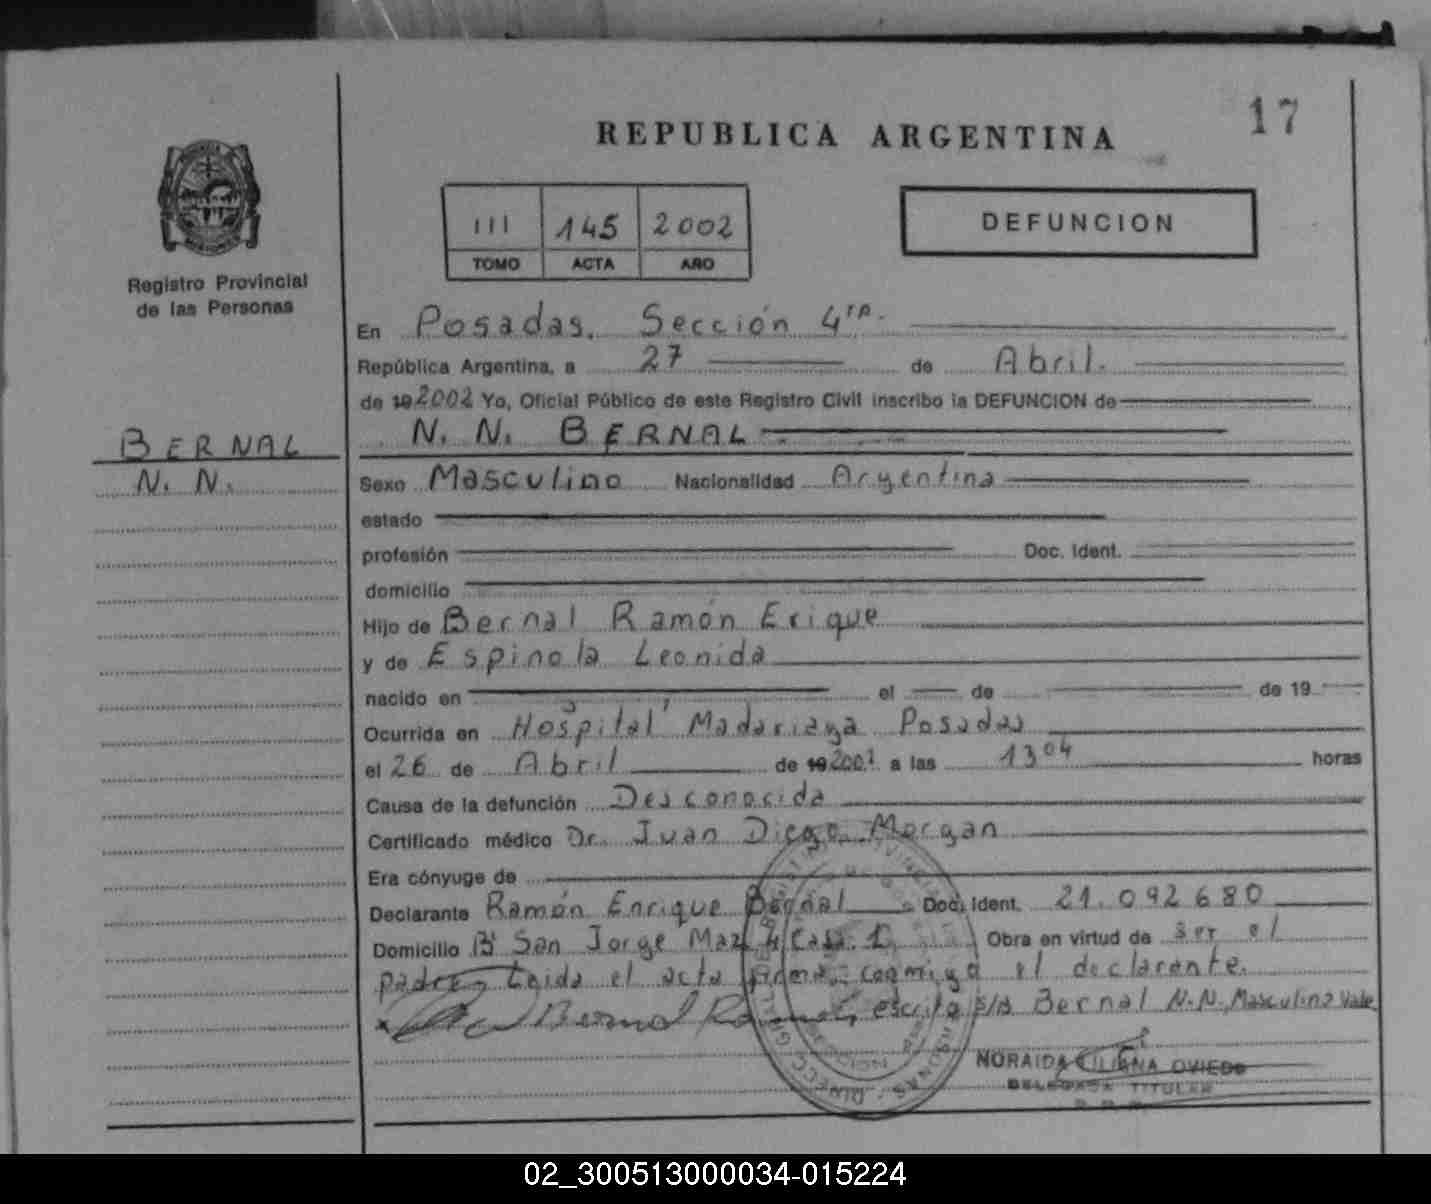 17
REPUBLICA ARGENTINA
III 145 2002
TOMO ACTA AÑO
DEFUNCION
Registro Provincial
de las Personas
En Posadas. Sección 4ta.
República Argentina, a 27 de Abril.
de 192002 Yo, Oficial Público de este Registro Civil inscribo la DEFUNCION de
N. N. BERNAL
BERNAL
N. N.
Sexo Masculino Nacionalidad Argentina
estado
profesión Doc. Ident.
domicilio
Hijo de Bernal Ramón Erique
y de Espinola Leonida
nacido en el de de 19
Ocurrida en Hospital Madariaga Posadas
el 26 de Abril de 192002 a las 13 04 horas
Causa de la defunción Desconocida
Certificado médico Dr. Juan Diego Morgan
Era cónyuge de
Declarante Ramón Enrique Bernal Doc. Ident. 21.092680
Domicilio Bº San Jorge Maz 4 Casa 1 Obra en virtud de ser el
padre, Leida el acta firma conmigo el declarante.
Bernal escrito s/r Bernal N.N, Masculino Vale
NORAIDA LILIANA OVIEDO
DELEGADA TITULAR
02_300513000034-015224